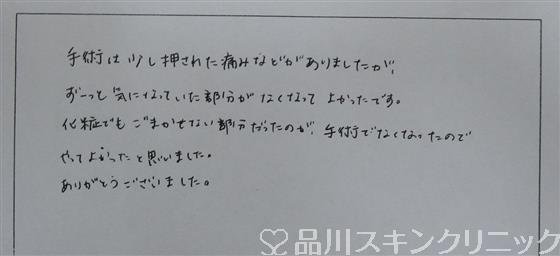 手術は少し押された痛みなどがありましたが、
ずーっと気になっていた部分がなくなってよかったです。
化粧でもごまかせない部分だったのが、手術でなくなったので
やってよかったと思いました。
ありがとうございました。
品川スキンクリニック